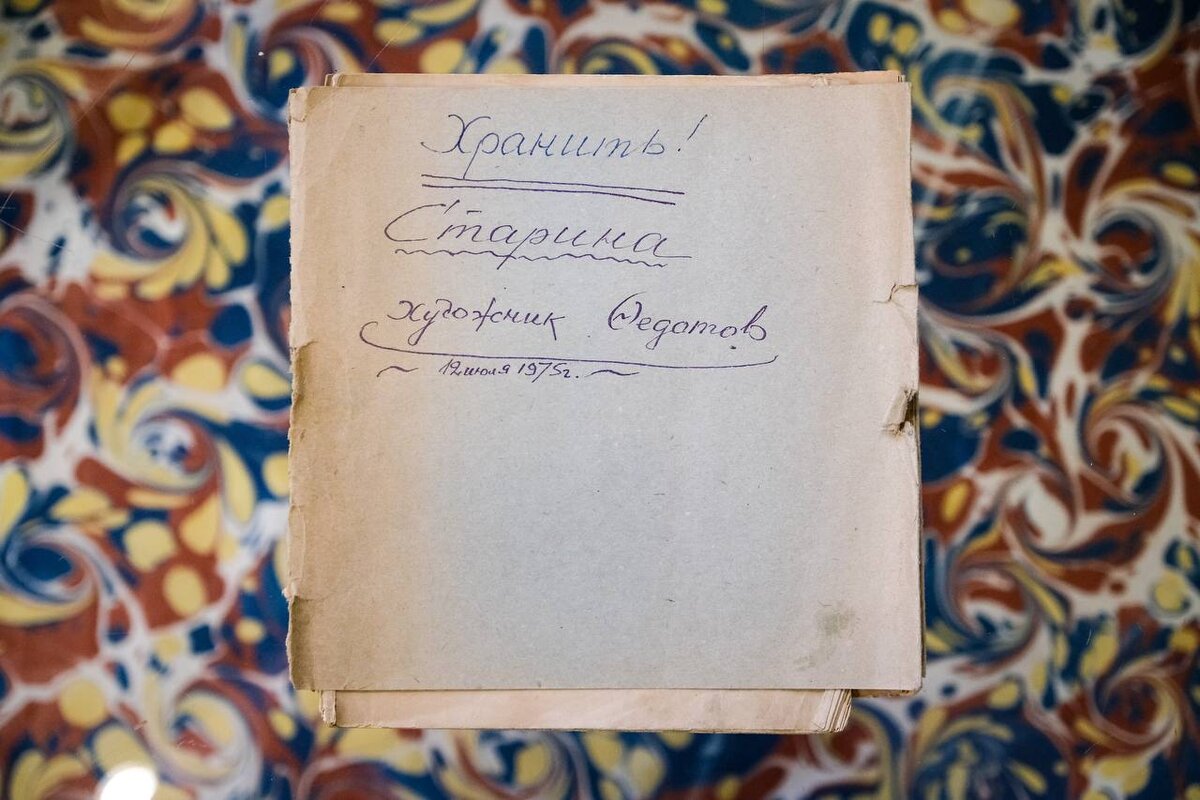 Хранить!
Старина
Художник Федотов
~ 12 июля 1975г. ~